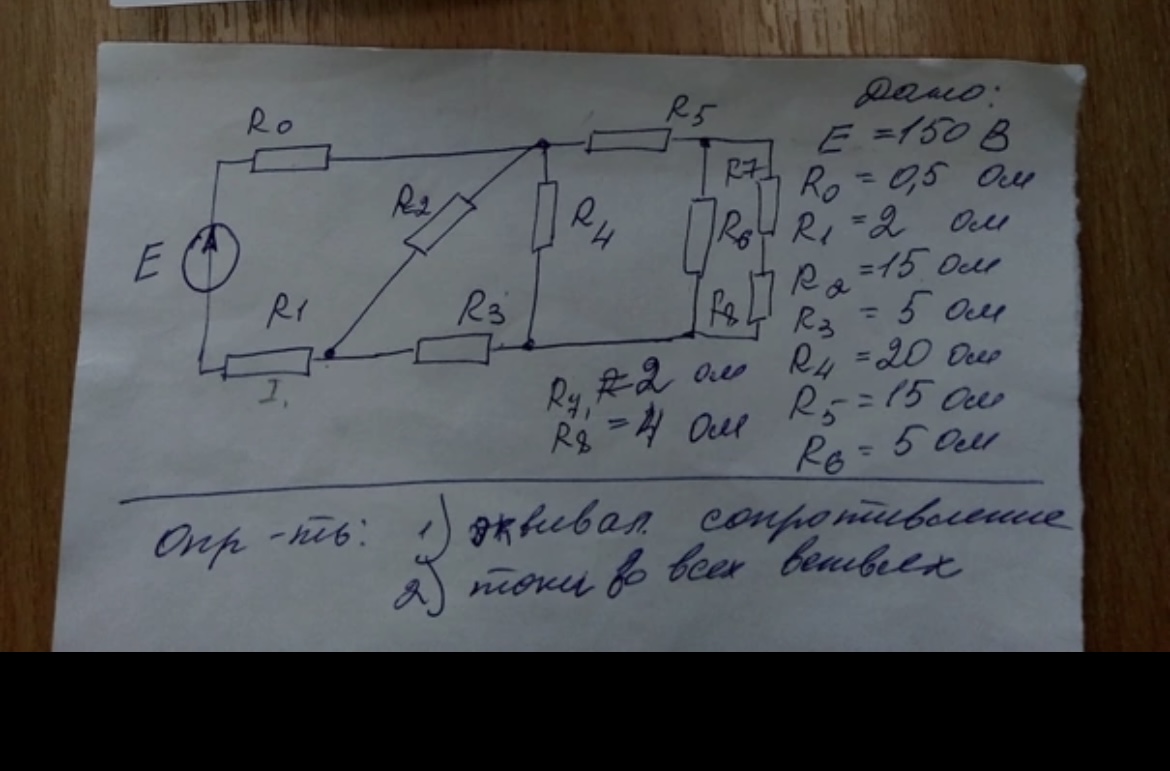 R0
R5
R2
R4
R7
R6
R8
E
R1
R3
I1
Дано:
E = 150 В
R0 = 0,5 Ом
R1 = 2 ом
R2 = 15 Ом
R3 = 5 Ом
R4 = 20 Ом
R5 = 15 Ом
R6 = 5 Ом
R7, = 2 ом
R8 = 4 Ом
Опр-ть: 1) эквивал. сопротивление
2) токи во всех ветвьях